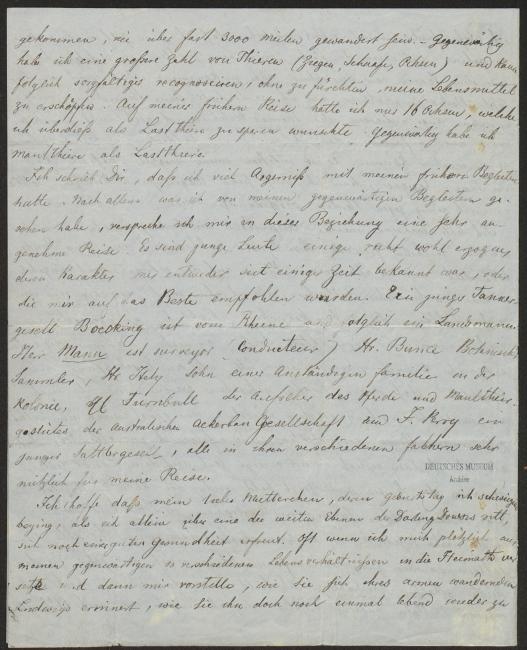 gekommen, nie über fast 3000 Meilen gewandert seyn. – Gegenwärtig
habe ich eine größere Zahl von Thieren (Ziegen, Schaafe, Rhein) und kann
folglich sorgfältiges recognosciren, ohne zu fürchten, meine Lebensmittel
zu erschöpfen. Auf meiner frühern Reise hatte ich nur 16 Ochsen, welche
ich überdieß als Lastthiere zu sparen wünschte. Gegenwärtig habe ich
Maulthiere als Lastthiere.
Ich schrieb Dir, daß ich viel Aergerniß mit meinen frühern Begleitern
hatte. Nach allem was ich von meinen gegenwärtigen Begleitern ge-
sehen habe, verspreche ich mir in dieser Beziehung eine sehr an-
genehme Reise. Es sind junge Leute einige recht wohl erzogen
deren Karakter mir entweder seit einiger Zeit bekannt war, oder
die mir auf das Beste empfohlen wurden. Ein junger Tanner-
gesell Boecking ist vom Rheine und folglich ein Landsmann.
Herr Mann ist surveyor (Conducteur) Hr. Bunce Botanischer
Sammler, Hr Hely Sohn einer Anständigen familie in der
Kolonie, Turnbull der Aufseher des Pferde und Maulthier-
gestütes der Australischen Ackerbau Gesellschaft und F. Perry ein
junger Sattlergesell, alle in ihren verschiedenen fächern sehr
nützlich für meine Reise.
Ich hoffe daß mein liebes Mütterchen, deren geburtstag ich
beging, als ich allein über eine der weiten Ebenen der Darling Downs ritt,
sich noch einer guten Gesundheit erfreut. Oft wenn ich mich plötzlich aus
meinen gegenwärtigen so verschiedenen Lebensverhältnissen in die Heimath ver
setze und dann mir vorstelle, wie sie sich ihres armen wandernden
Ludwigs erinnert, wie sie ihn doch noch einmal lebend wieder zu
DEUTSCHES MUSEUM
Archiv